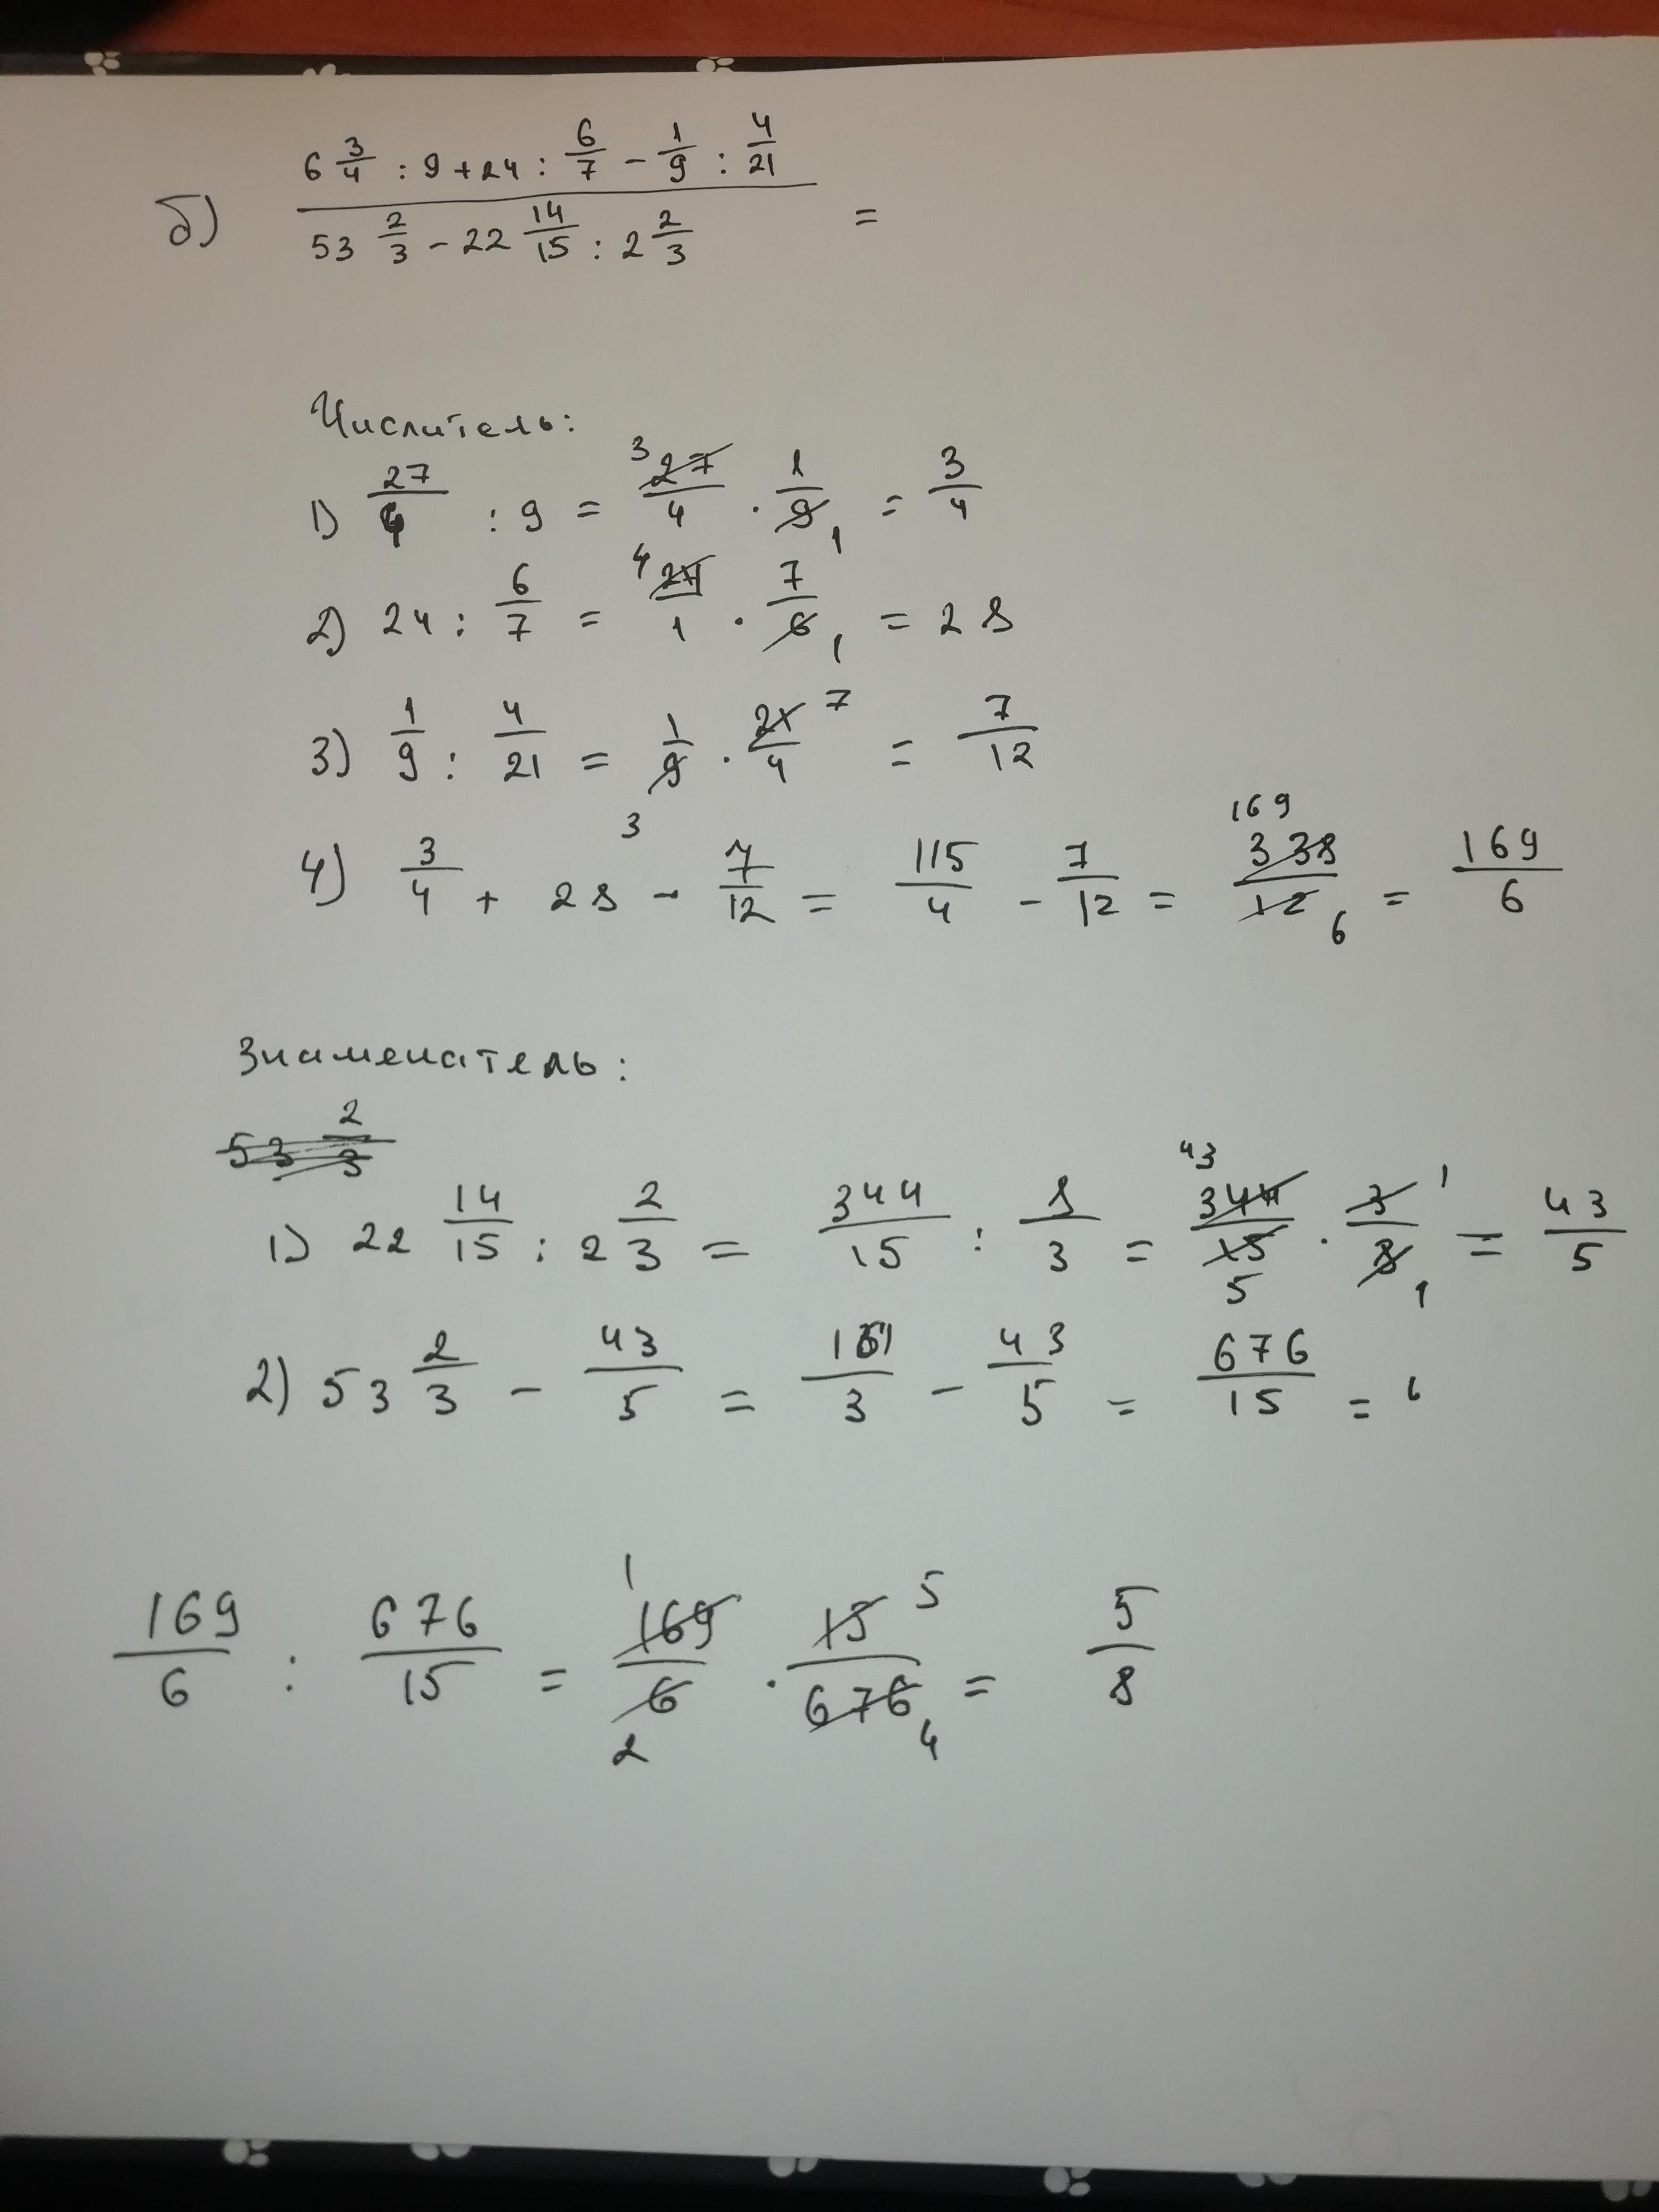 б) (6 3/4 : 9 + 24 : 6/7 - 1/9 : 4/21) / (53 2/3 - 22 14/15 : 2 2/3) =
Числитель:
1) 27/4 : 9 = 27/4 · 1/9 = 3/4
2) 24 : 6/7 = 24/1 · 7/6 = 28
3) 1/9 : 4/21 = 1/9 · 21/4 = 7/12
4) 3/4 + 28 - 7/12 = 115/4 - 7/12 = 338/12 = 169/6
Знаменатель:
53 2/3
1) 22 14/15 : 2 2/3 = 344/15 : 8/3 = 344/15 · 3/8 = 43/5
2) 53 2/3 - 43/5 = 161/3 - 43/5 = 676/15 =
169/6 : 676/15 = 169/6 · 15/676 = 5/8